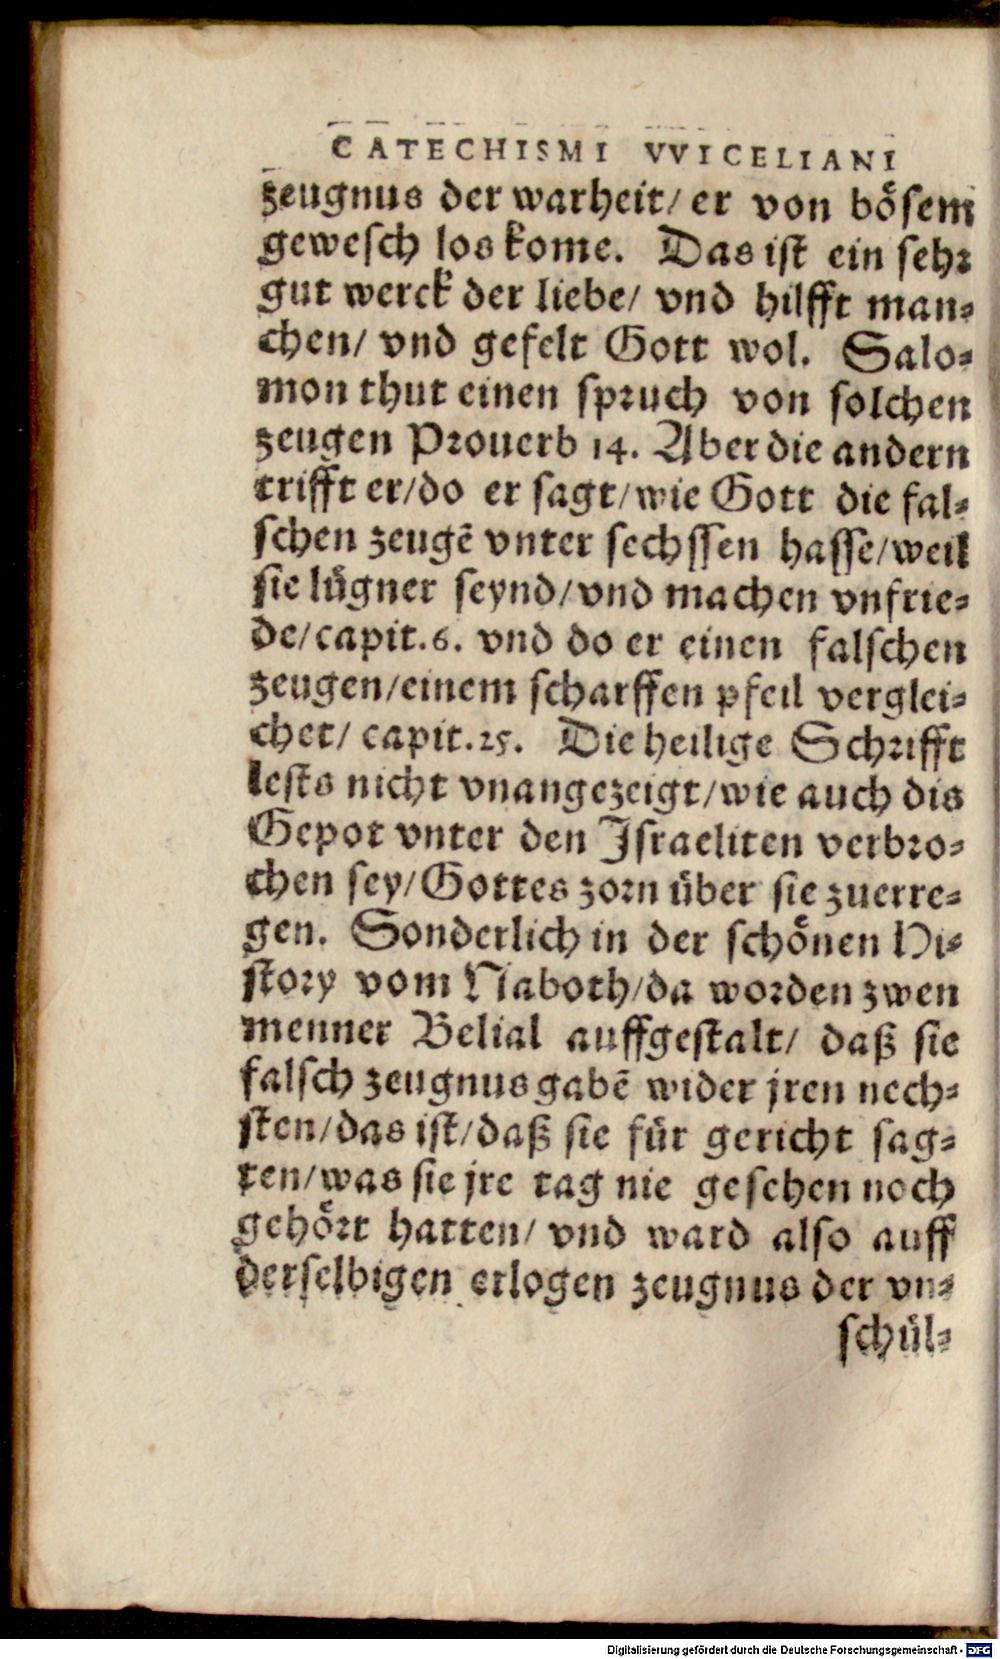 CATECHISMI VVICELIANI
zeugnus der warheit/ er von bösem
gewesch los kome. Das ist ein sehr
gut werck der liebe/ vnd hilfft man-
chen/ vnd gefelt Gott wol. Salo-
mon thut einen spruch von solchen
zeugen Prouerb 14. Aber die andern
trifft er/do er sagt/wie Gott die fal-
schen zeugẽ vnter sechssen hasse/weil
sie lügner seynd/vnd machen vnfrie-
de/capit.6. vnd do er einen falschen
zeugen/einem scharffen pfeil verglei-
chet/ capit.25. Die heilige Schrifft
lests nicht vnangezeigt/wie auch dis
Gepot vnter den Israeliten verbro-
chen sey/Gottes zorn über sie zuerre-
gen. Sonderlich in der schönen Hi-
story vom Naboth/da worden zwen
menner Belial auffgestalt/ daß sie
falsch zeugnus gabẽ wider jren nech-
sten/das ist/daß sie für gericht sag-
ten/was sie jre tag nie gesehen noch
gehört hatten/ vnd ward also auff
derselbigen erlogen zeugnus der vn-
schül-
Digitalisierung gefördert durch die Deutsche Forschungsgemeinschaft - DFG